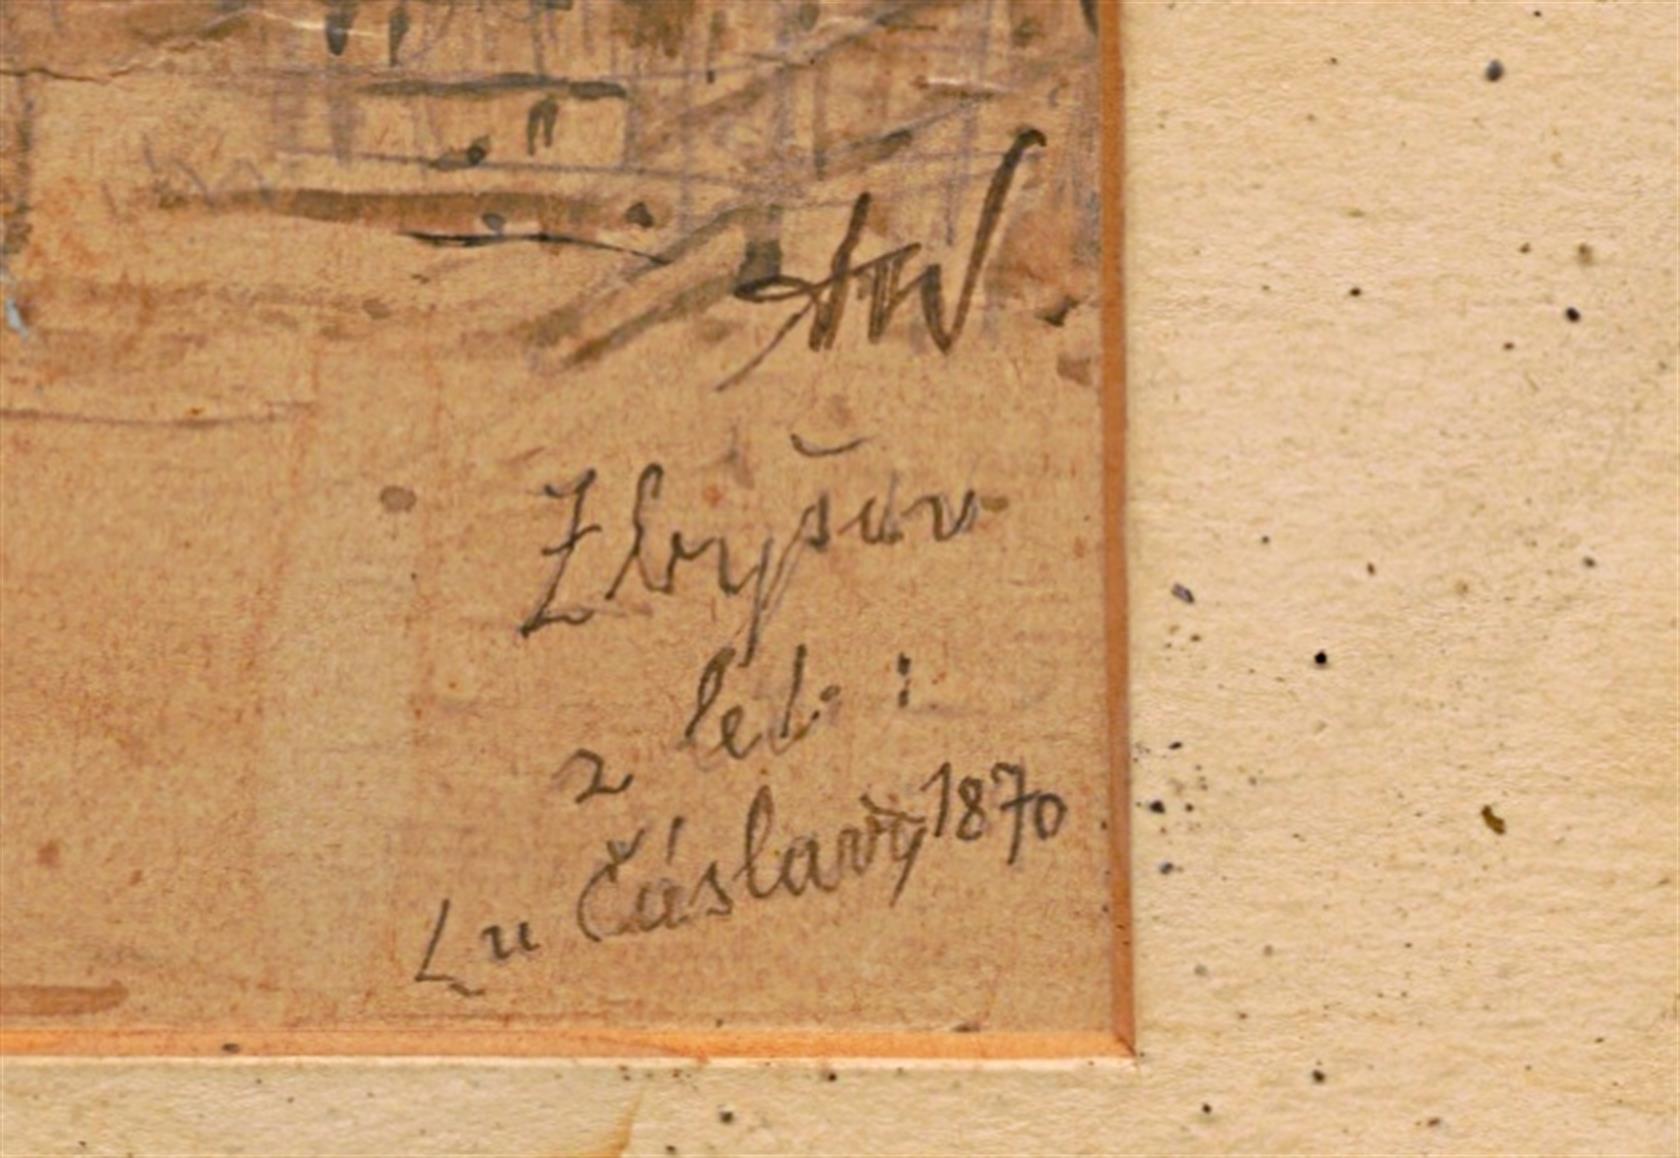 AW
Zbyšov
z let:
u Čáslavi, 1870